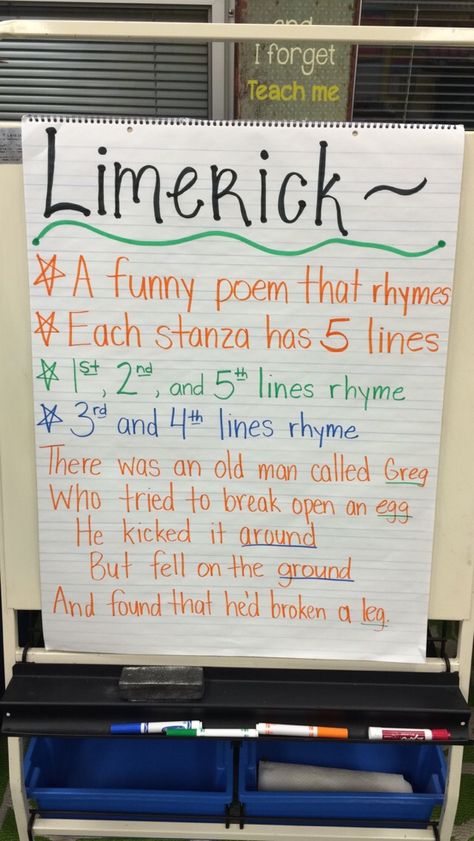 and
I forget
Teach me
Limerick ~
A funny poem that rhymes
Each stanza has 5 lines
1st, 2nd, and 5th lines rhyme
3rd and 4th lines rhyme
There was an old man called Greg
Who tried to break open an egg
He kicked it around
But fell on the ground
And found that he'd broken a leg.